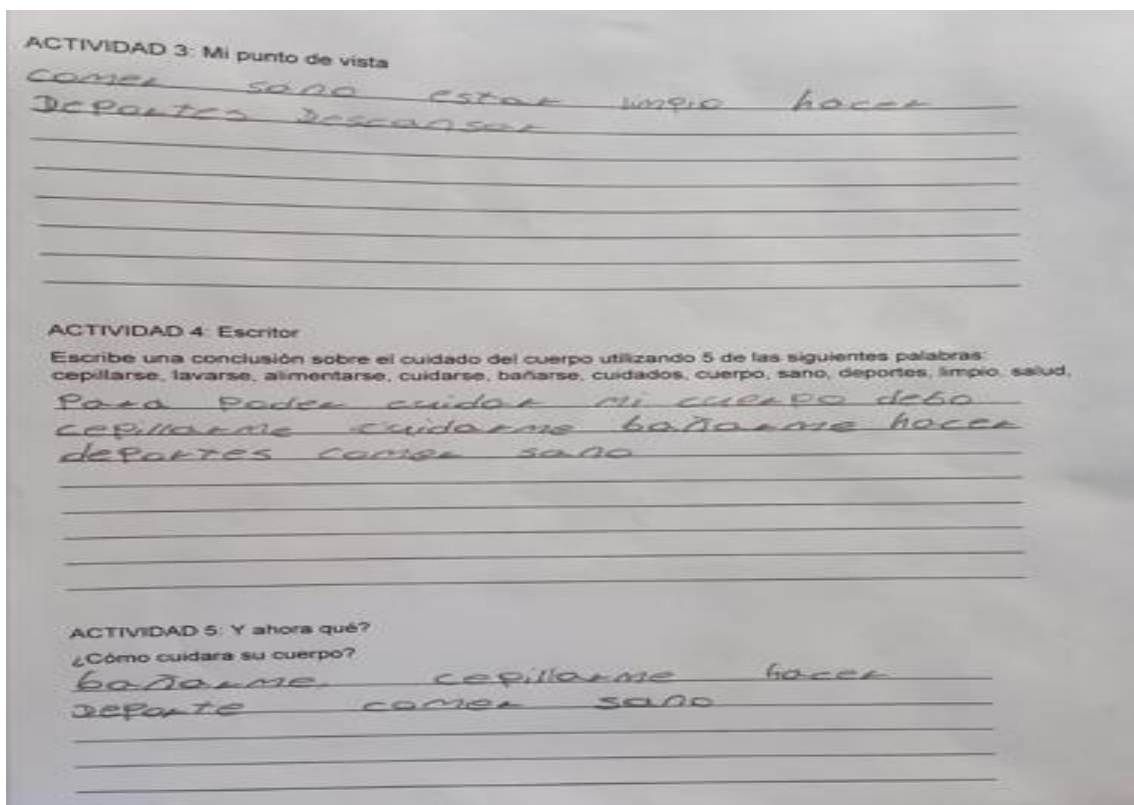 ACTIVIDAD 3: Mi punto de vista
comer sano estar limpio hacer
Deportes Descansar
ACTIVIDAD 4: Escritor
Escribe una conclusión sobre el cuidado del cuerpo utilizando 5 de las siguientes palabras:
cepillarse, lavarse, alimentarse, cuidarse, bañarse, cuidados, cuerpo, sano, deportes, limpio, salud,
Para Poder cuidar mi cuerpo debo
cepillarme cuidarme bañarme hacer
dePortes comer sano
ACTIVIDAD 5: Y ahora qué?
¿Cómo cuidara su cuerpo?
bañarme cepillarme hacer
DePorte comer sano